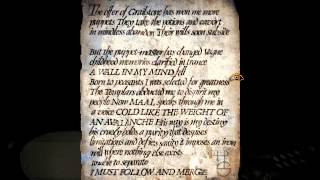 The offer of Grailstone has won me more
puppets They take the potions and cavort
in mindless abandon Their wills soon subside
But the puppet-master fay changed Vague
childhood memories clarified in trance
A WALL IN MY MIND fell
Born to peasants I was selected for greatness
The Templars abducted me to dispirit my
people Now MAAL speaks through me in
a voice COLD LIKE THE WEIGHT OF
AN AVALANCHE His way is my destiny
his creed upholds a purity that despises
limitations and defies gravity it imposes an iron
will where nothing else exists
unable to separate
I MUST FOLLOW AND MERGE